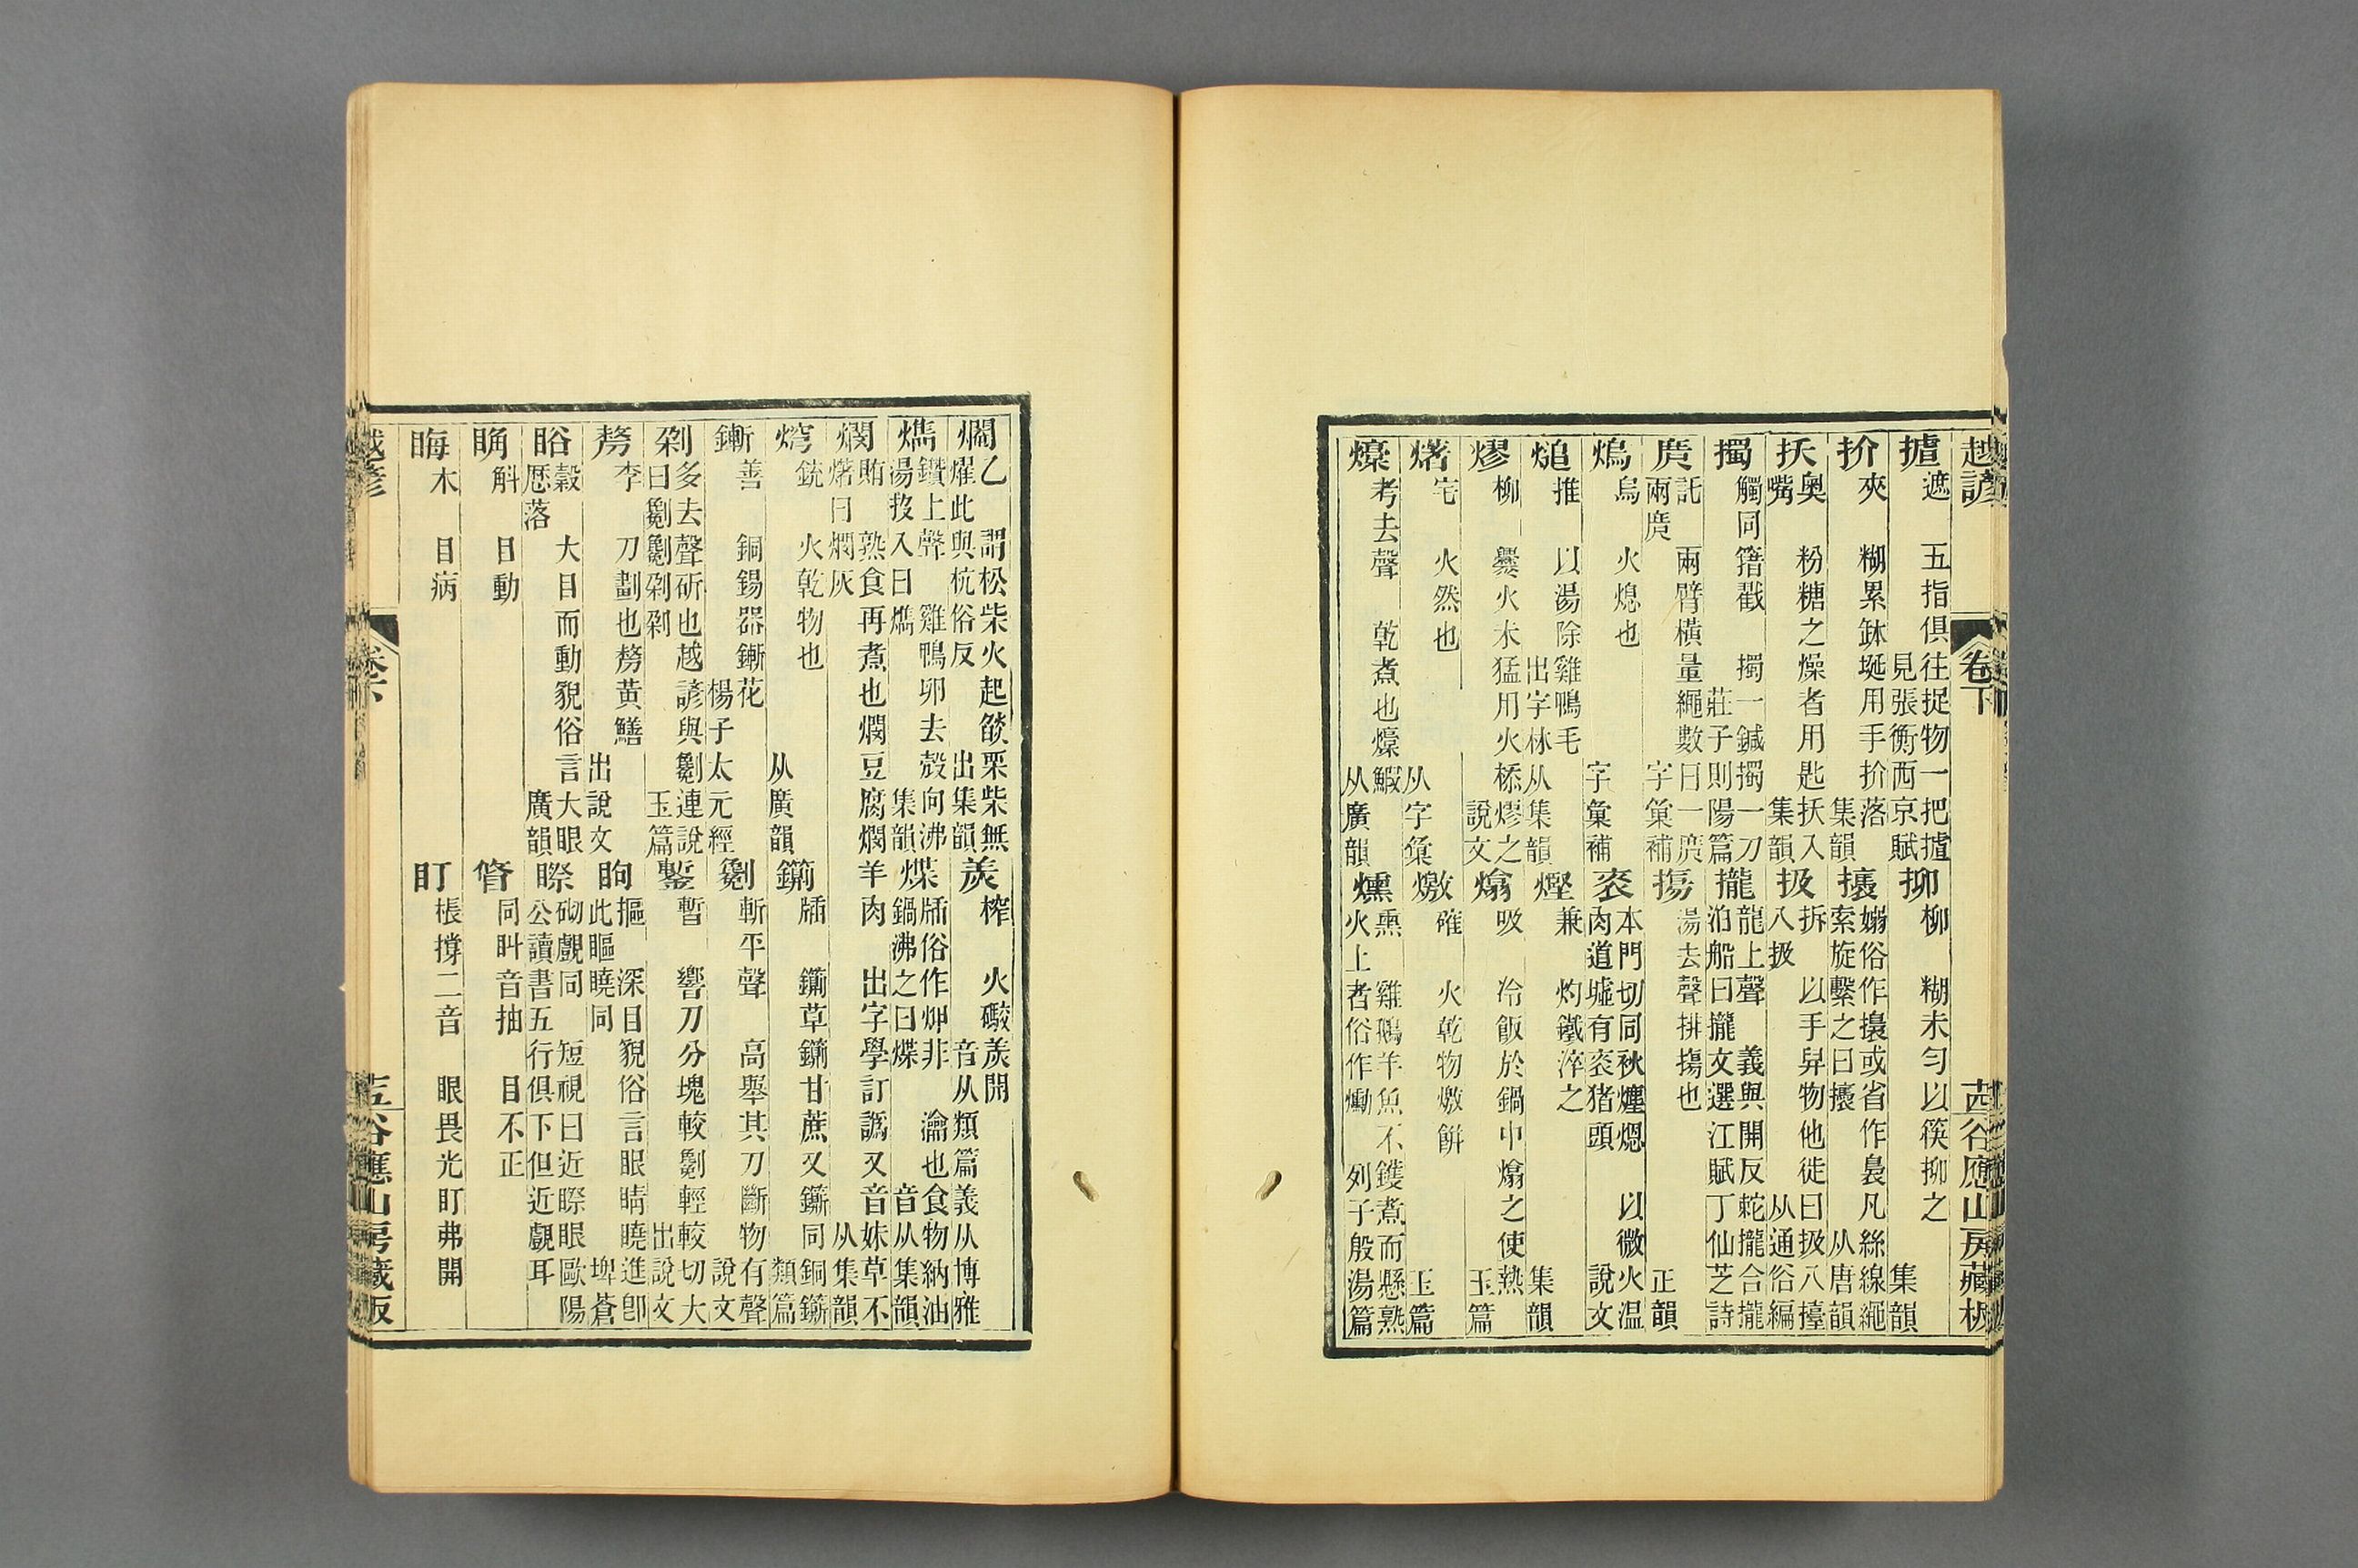 越諺 卷下 茜谷應山房藏板
摣 遮 五指俱往捉物一把摣 見張衡西京賦 抑 柳 糊未勻以筷抑之 集韻
扴 夾 糊累鉢埏用手扴落 集韻 攐 嫋俗作攘或省作裊凡絲線繩索旋繫之曰攐 从唐韻
扷 奧嘴 粉糖之燥者用匙扷入 集韻 扱 拆入扱 以手舁物他徙曰扱八擡 从通俗編
擉 觸同籍戳 擉一鍼擉一刀 莊子則陽篇 攏 龍上聲 義與開反蛇攏合攏泊船曰攏 文選江賦丁仙芝詩
庹 託兩庹 兩臂橫量繩數曰一庹 字彙補 摥 湯去聲排摥也 正韻
熓 烏 火熄也 字彙補 衮 本門切同炋煙煾 以微火温肉道墟有衮猪頭 說文
煺 推 以湯除雞鴨毛 出字林从集韻 熞 兼 灼鐵淬之 集韻
熮 柳 爨火未猛用火㮇熮之 說文 熻 吸 冷飯於鍋中熻之使熱 玉篇
𤍽 宅 火然也 从字彙 燩 確 火乾物燩餠 玉篇
燺 考去聲 乾煮也燺鰕 从廣韻 燻 熏 雞鵝羊魚不鑊煮而懸熟火上者俗作勳 列子殷湯篇
爓 乙 謂松柴火起燄栗柴無燿此與杭俗反 出集韻 羙 榨 火礮羙開 音从類篇義从博雅
𤐪 鑽上聲 雞鴨卵去殻向沸湯投入曰𤐪 集韻 煠 牐俗作炠非 瀹也食物納油鍋沸之曰煠 音从集韻
燘 賄 熟食再煮也燘豆腐燘羊肉 出字學訂譌又音妹草不𤍽曰燘灰 从集韻
焪 銃 火乾物也 从廣韻 鍘 牐 鍘草鍘甘蔗又鍘同銅鍘 類篇
鏩 善 銅錫器鏩花 楊子太元經 劖 斬平聲 高舉其刀斷物有聲 說文
剁 多去聲斫也越諺與劖連說曰劖劖剁剁 玉篇 鏨 暫 響刀分塊較劖輕較切大 出說文
剺 李 刀劃也剺黃鱔 出說文 眗 摳 深目貌俗言眼睛𥌮進卽此瞘𥌮同 埤蒼
𥇙 穀 大目而動貌俗言大眼𥇙落 廣韻 瞭 砌覷同 短視曰近瞭眼歐陽公讀書五行俱下但近覷耳
䀶 斛 目動 䀺 同䀏音抽 目不正
䀲 木 目病 盯 棖撐二音 眼畏光盯弗開
越諺 卷下 茜谷應山房藏板